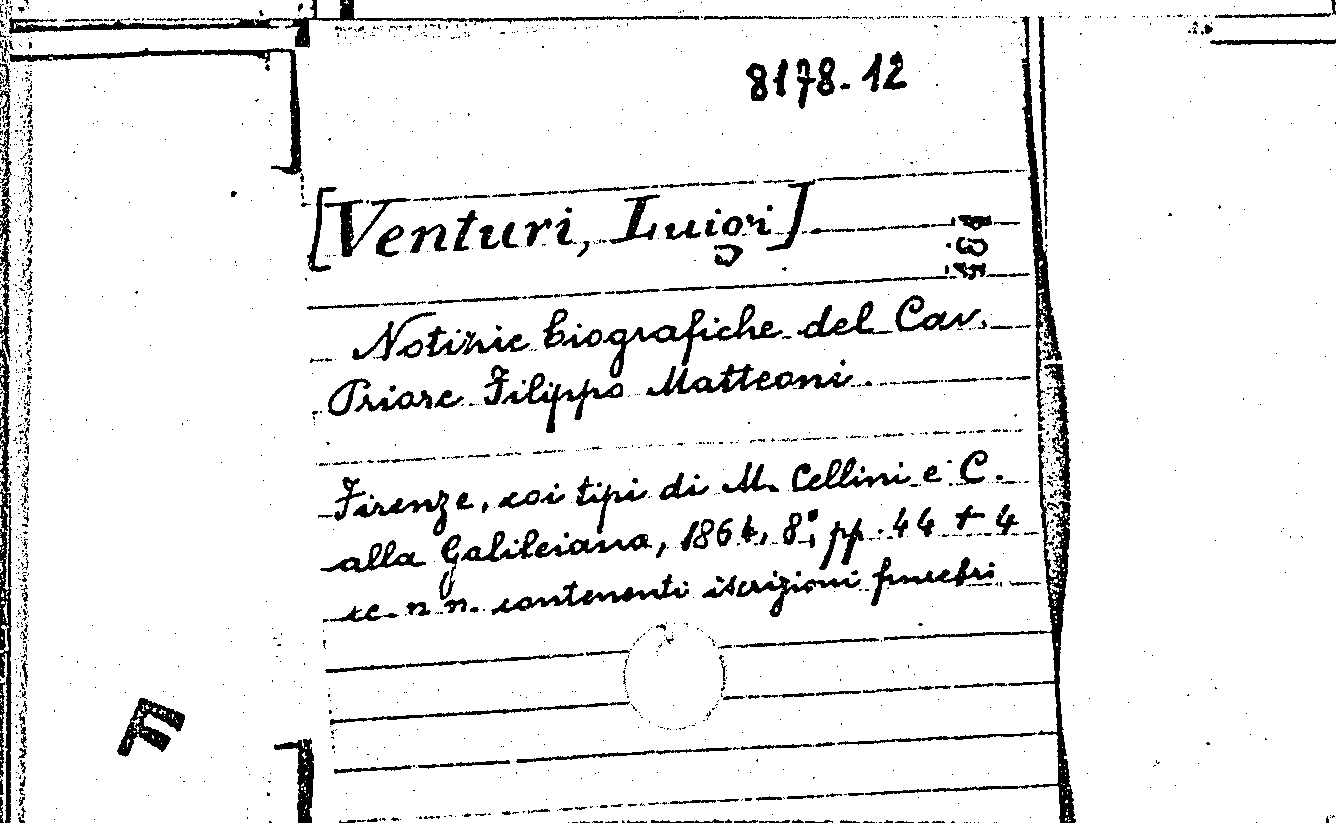 8178.12
[Venturi, Luigi].
Notizie biografiche del Cav.
Priore Filippo Matteoni.
Firenze, coi tipi di M. Cellini e C.
alla Galileiana, 1864, 8°, pp. 44 + 4
cc. n. n. contenenti iscrizioni funebri
F